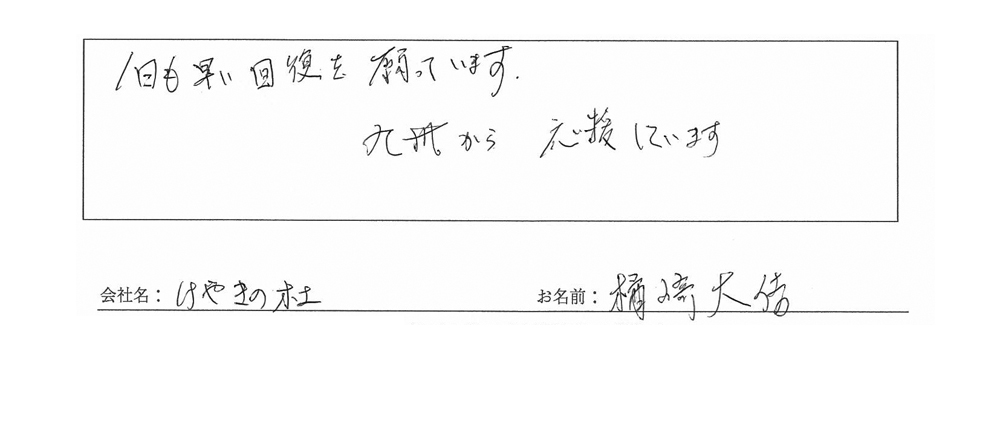 1日も早い回復を願っています.
九州から 応援しています
会社名：けやきの杜
お名前： 大